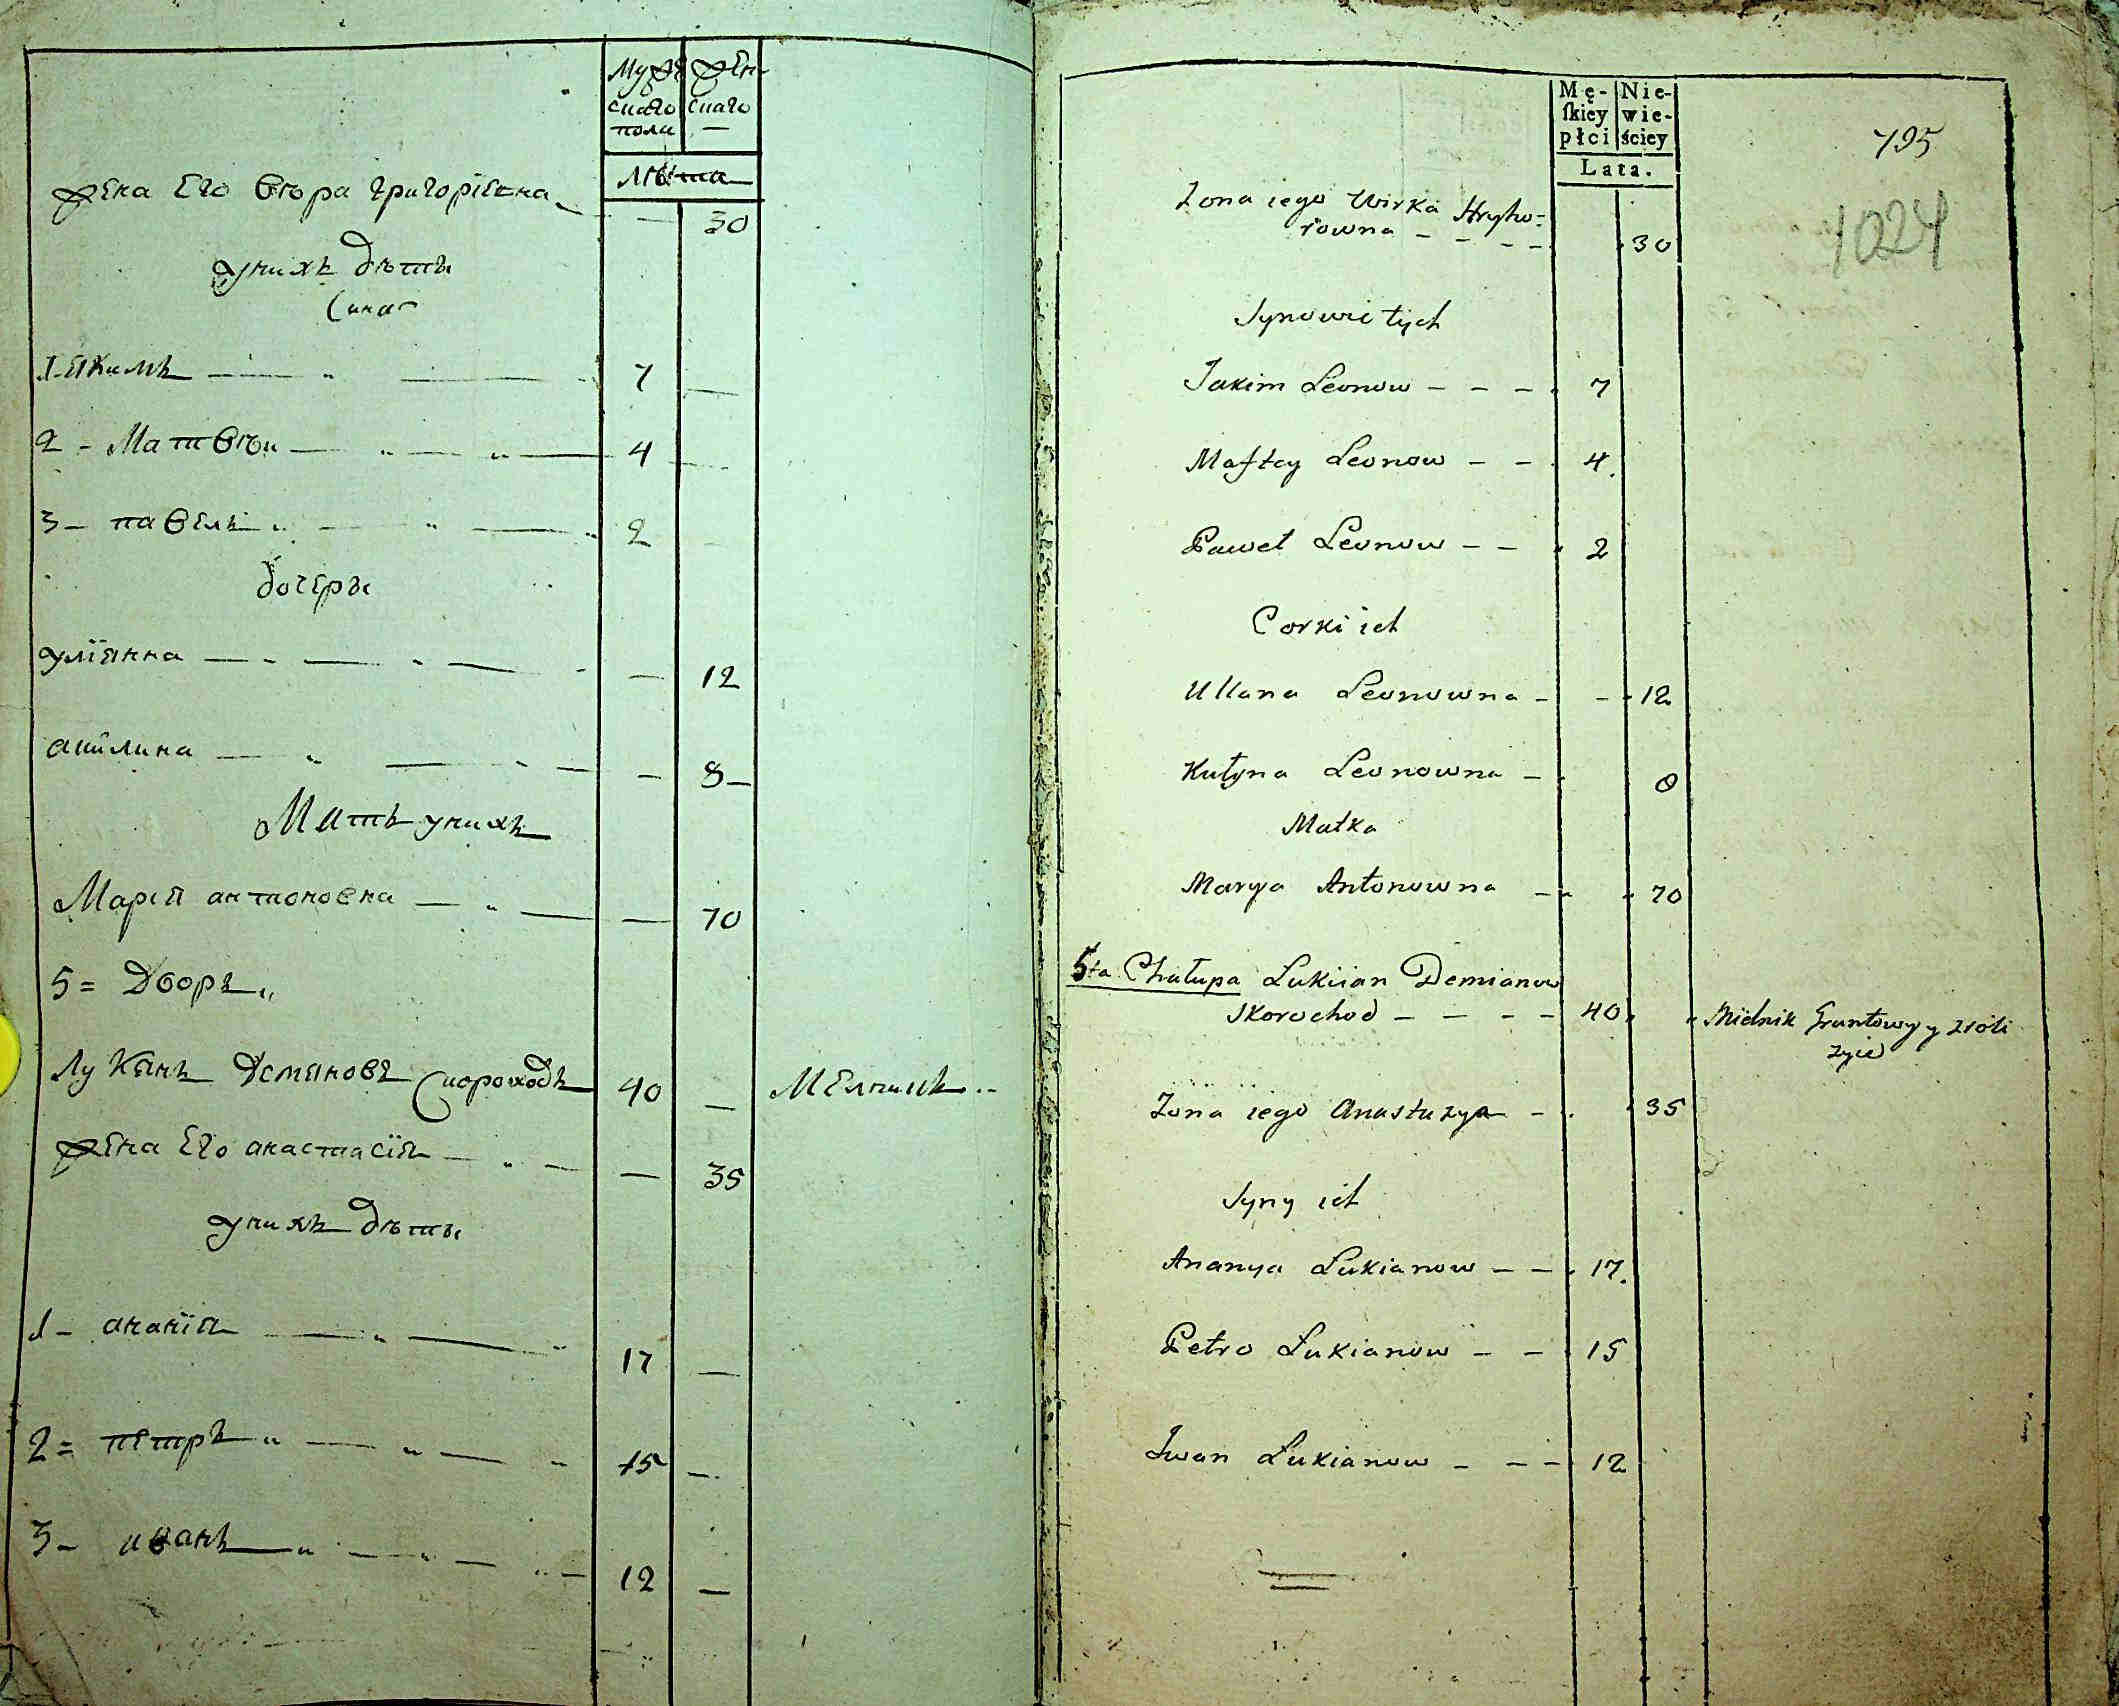 Мужескаго пола
Женскаго
Лѣта
Жена Его Вѣра Григоріевна 30
у нихъ дѣти
Сина
1 - Якимъ 7
2 - Матвѣи 4
3 - павелъ 2
дочеры
уліянна 12
акилина 8
Мать у нихъ
Марія антоновна 70
5 = Дворъ
Лукянъ Демяновъ Скороходъ 40 Мелникъ
Жена Его анастасія 35
у нихъ дѣты
1 - ананія 17
2 = петръ 15
3 - иванъ 12
Mę-
ſkiey
płci
Nie-
wie-
ściey
Lata.
795
1024
Zona iego Wirka Hryho-
rowna 30
Synowie tych
Jakim Leonow 7
Maftey Leonow 4
Paweł Leonow 2
Corki ich
Ullana Leonowna 12
Kulyna Leonowna 8
Matka
Marya Antonowna 70
5ta Chałupa Lukiian Demianow
Skorochod 40 Mielnik Gruntowy y z roli
zyie
Zona iego Anastazya 35
Syny ich
Ananya Lukianow 17
Petro Lukianow 15
Iwan Lukianow 12